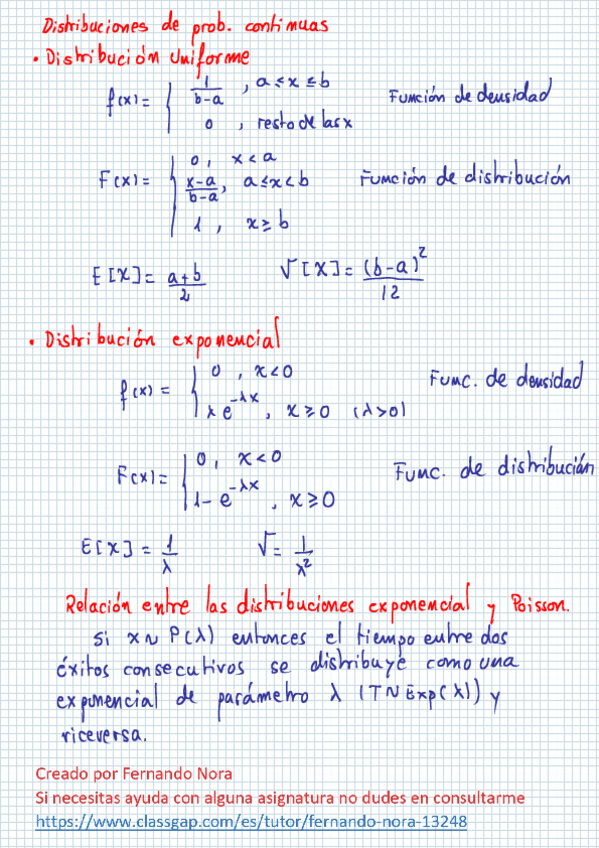 Distribuciones de prob. continuas
• Distribución Uniforme
f(x) = { 1/(b-a) , a ≤ x ≤ b
0 , resto de las x
Función de densidad
F(x) = { 0, x < a
(x-a)/(b-a), a ≤ x < b
1, x ≥ b
Función de distribución
E[X] = (a+b)/2 V[X] = (b-a)²/12
• Distribución exponencial
f(x) = { 0, x < 0
λ e^(-λx), x ≥ 0 (λ > 0)
Func. de densidad
F(x) = { 0, x < 0
1 - e^(-λx), x ≥ 0
Func. de distribución
E[X] = 1/λ V = 1/λ²
Relación entre las distribuciones exponencial y Poisson.
Si x ~ P(λ) entonces el tiempo entre dos
éxitos consecutivos se distribuye como una
exponencial de parámetro λ (T ~ Exp(λ)) y
viceversa.
Creado por Fernando Nora
Si necesitas ayuda con alguna asignatura no dudes en consultarme
https://www.classgap.com/es/tutor/fernando-nora-13248